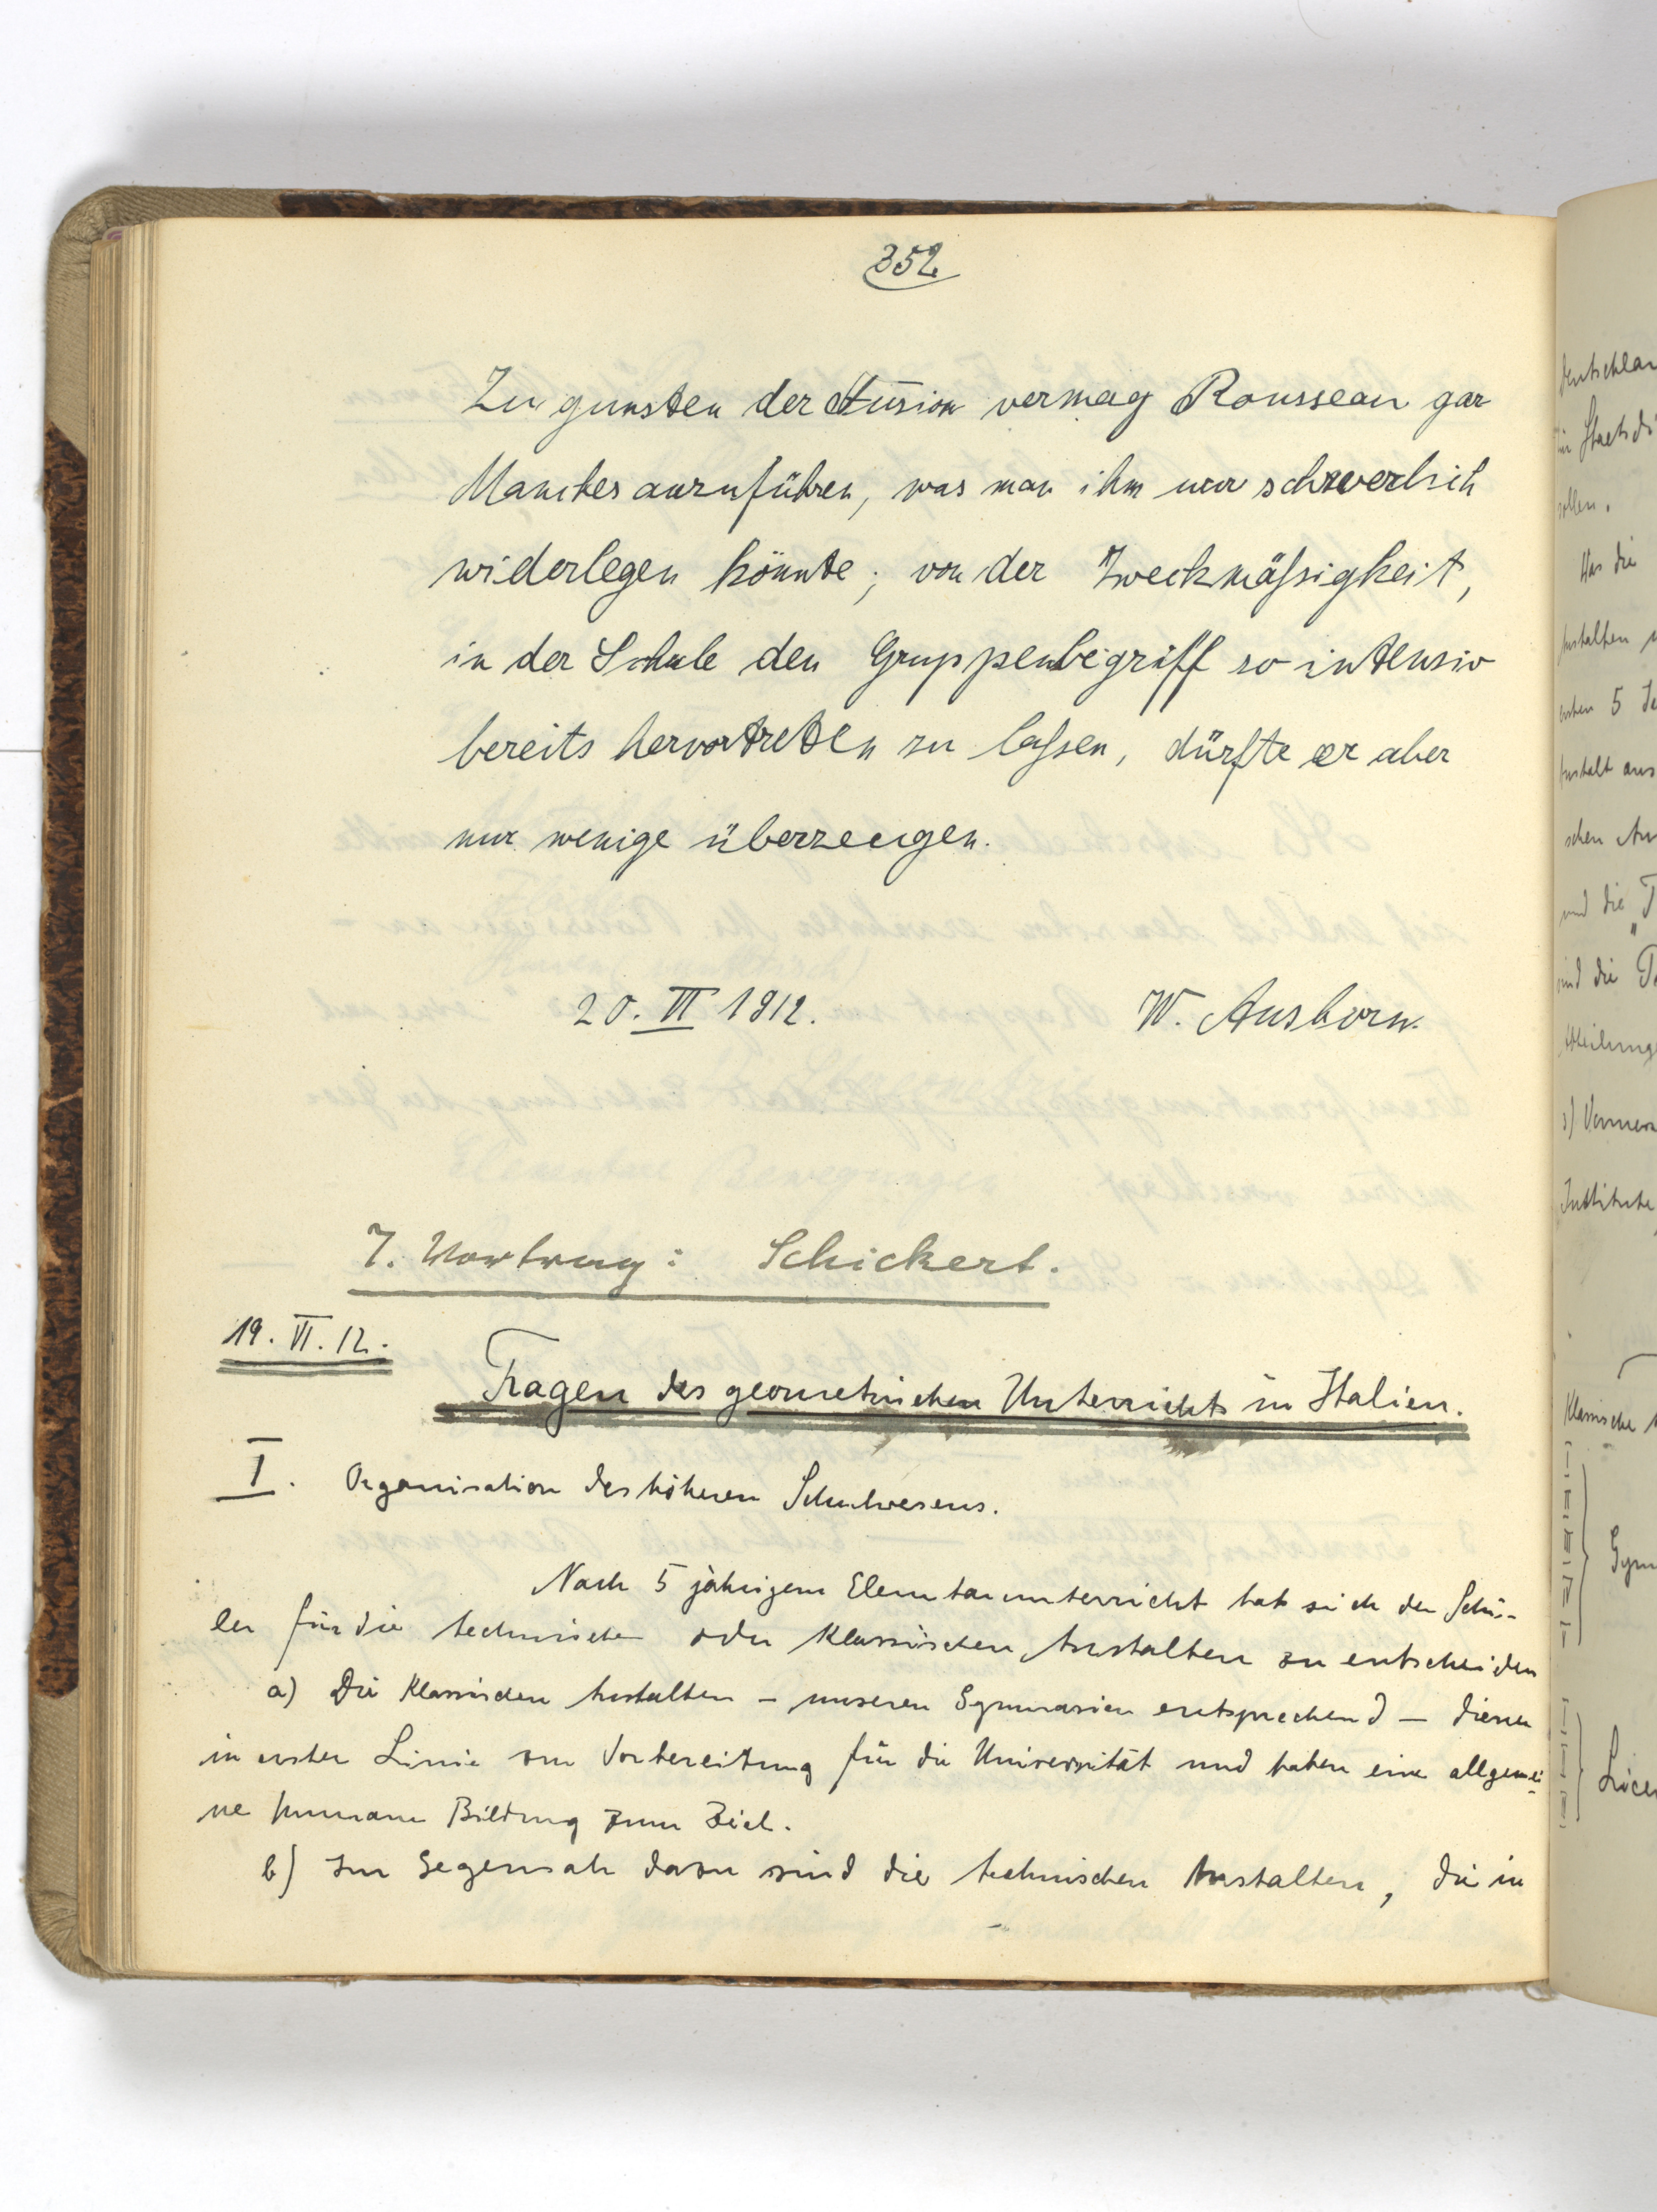 352
Zu gunsten der Fusion vermag Rousseau gar
Manches anzuführen, was man ihm nur schwerlich
widerlegen könnte; von der Zweckmäßigkeit,
in der Schule den Gruppenbegriff so intensiv
bereits hervortreten zu laßen, dürfte er aber
nur wenige überzeugen.
20. VI 1912. W. Ausborn.
7. Vortrag: Schickert.
19. VI. 12.
Fragen des geometrischen Unterrichts in Italien.
I. Organisation des höheren Schulwesens.
Nach 5 jährigem Elementarunterricht hat sich der Schü-
ler für die technischen oder klassischen Anstalten zu entscheiden
a) Die klassischen Anstalten – unseren Gymnasien entsprechend – dienen
in erster Linie zur Vorbereitung für die Universität und haben eine allgemei-
ne humane Bildung zum Ziel.
b) Im Gegensatz dazu sind die technischen Anstalten, die in
sollen.
Was die
ersten 5
und die
sind die
Institute
Klassische